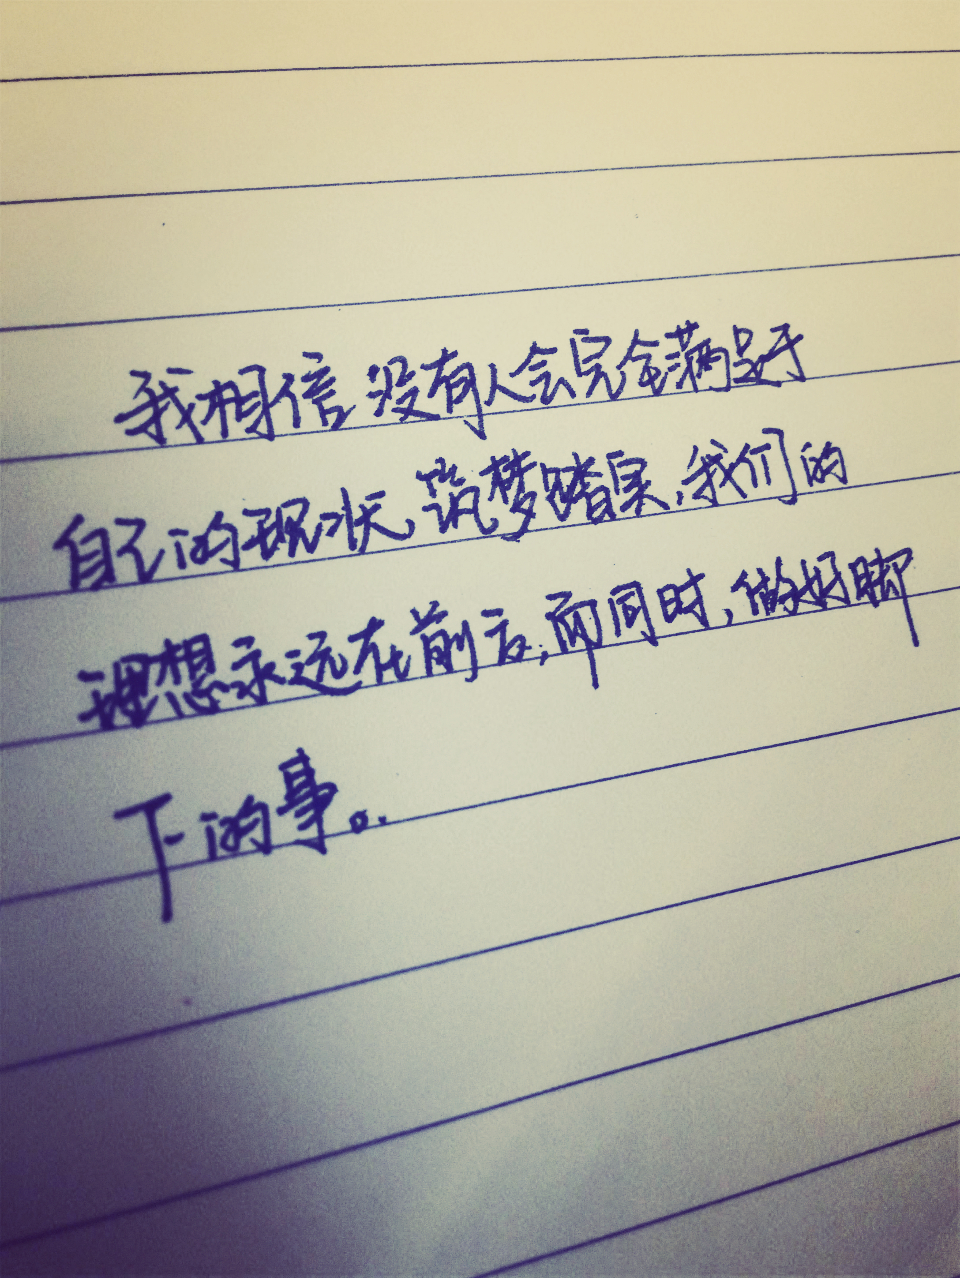 我相信没有人会完全满足于
自己的现状,筑梦踏实,我们的
理想永远在前方,而同时,做好脚
下的事。.